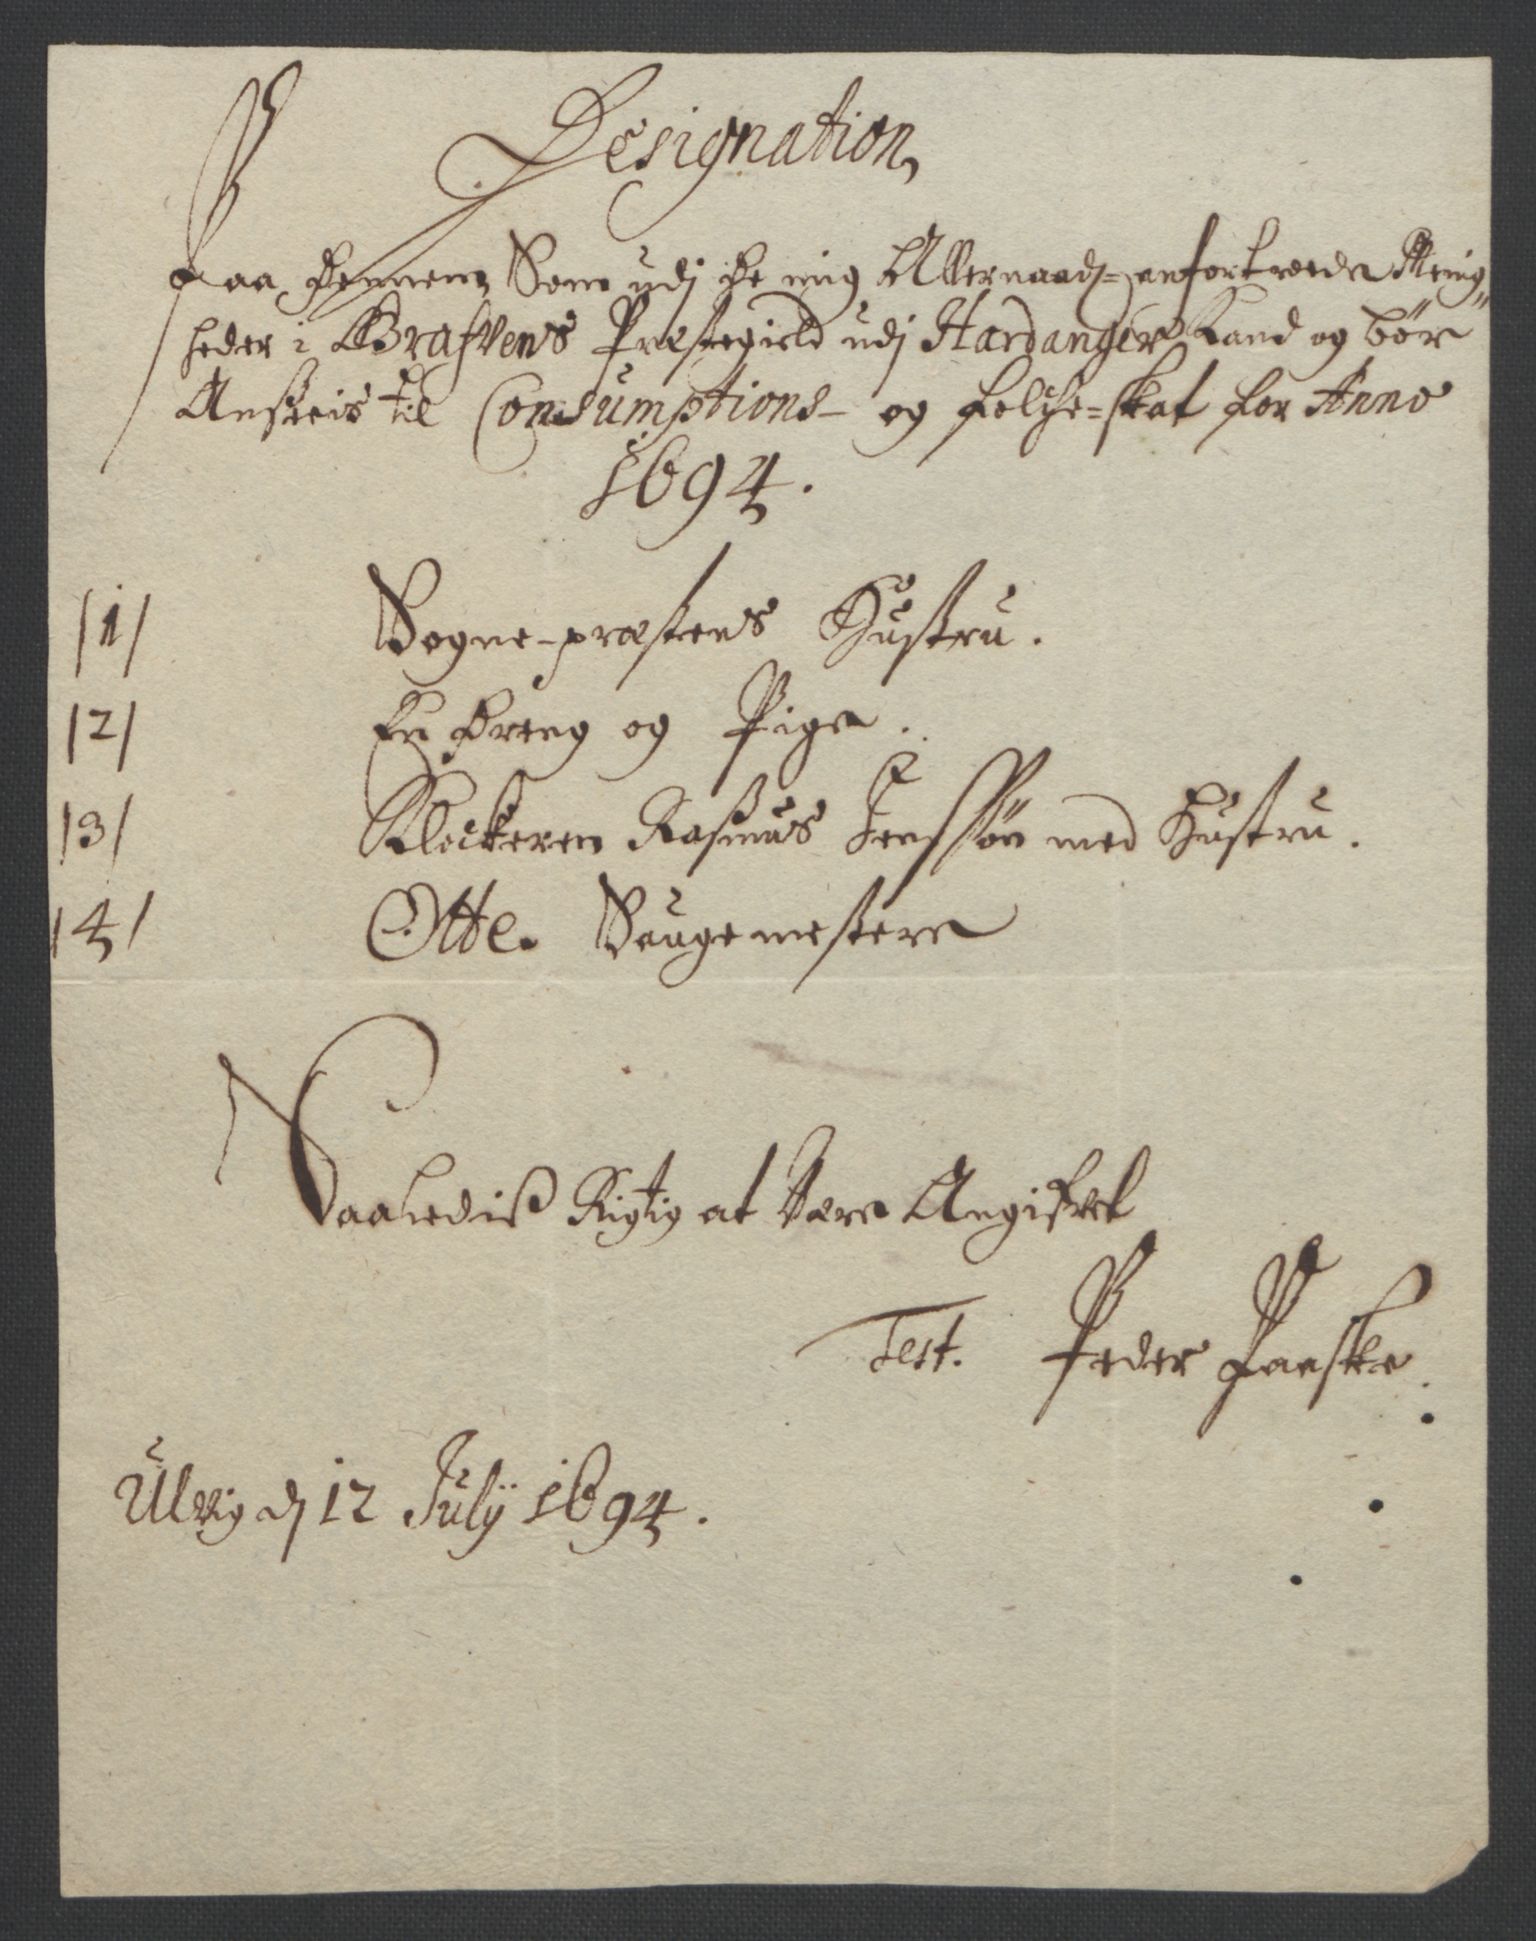 Designation
Paa dennem Som udj de mig Allernaadj= anfortroede Menig„
heder i Grafvens Præstegield udj Hardanger Kand og bör
Ansees til Consumptions- og Folche=skat for Anno
1694.
/1/ Sogne-præstens Hustru.
/2/ En Dreng og Pige.
/3/ Klockeren Rasmus Jenssön med Hustru.
/4/ Otte Saugemestere
Saaledis Rigtig at Være Angifvet
Test. Peder Paaske
Ulvig dj 12 Julij 1694.